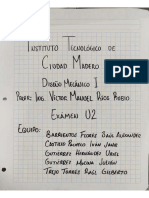 INSTITUTO TECNOLÓGICO DE
CIUDAD MADERO
DISEÑO MECÁNICO I
PROFR: ING. VICTOR MANUEL POZOS RUBIO
EXAMEN U2
EQUIPO:
BARRIENTOS FLORES RAÚL ALEXANDER
CASTILLO PACHECO IVÁN JAHIR
GUTIÉRREZ HERNÁNDEZ URIEL
GUTIÉRREZ MOLINA JULIÁN
TREJO TORRES RAÚL GILBERTO